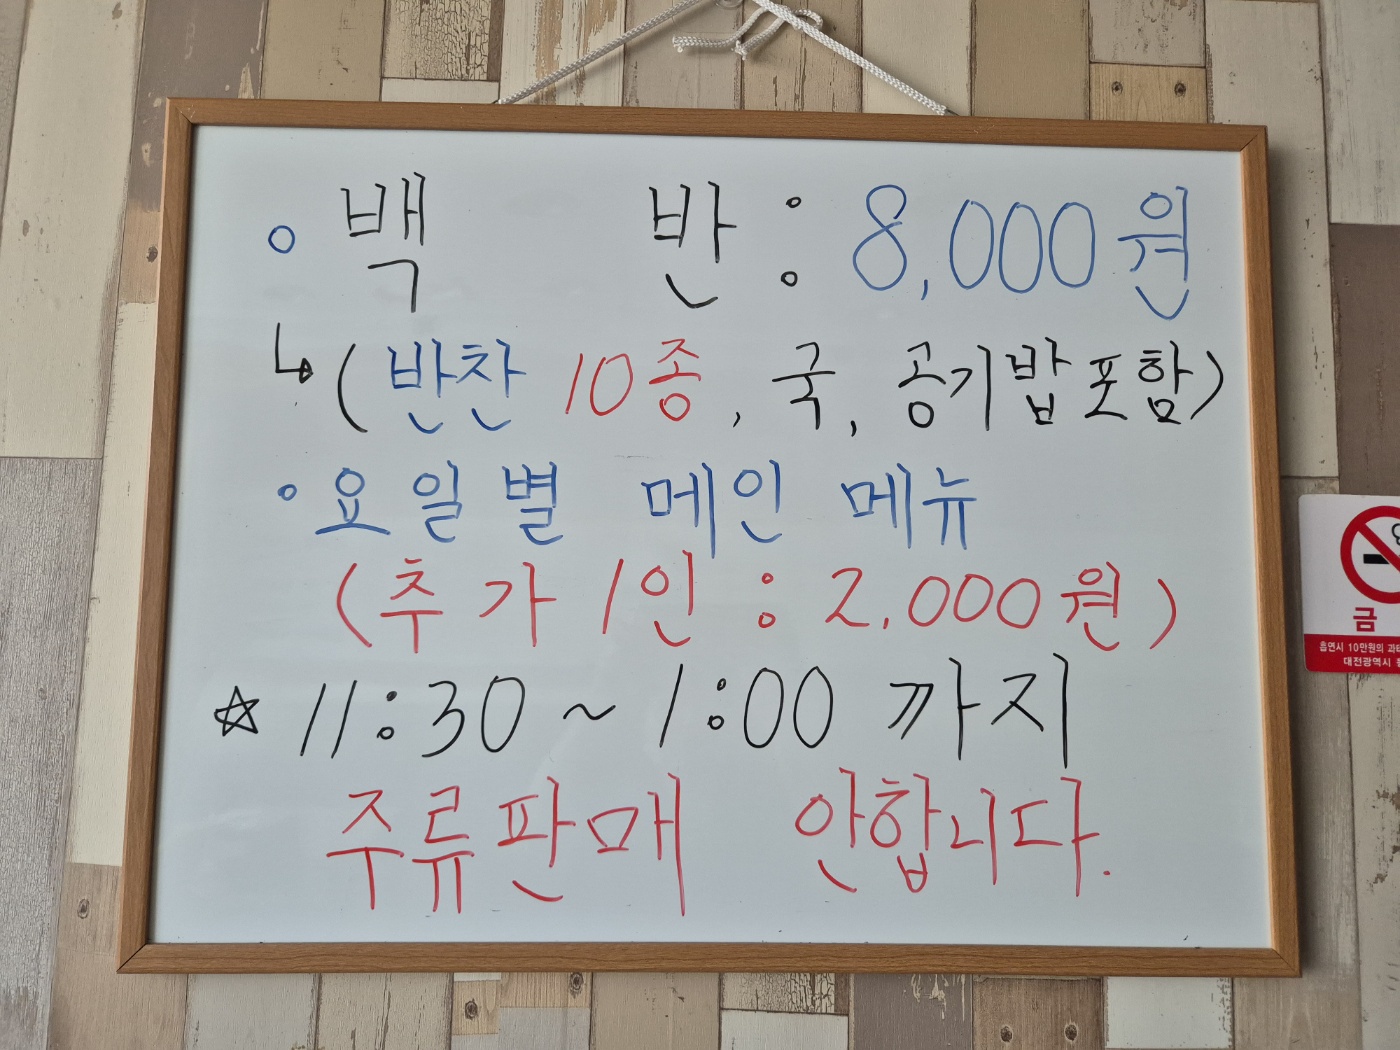 ◦ 백 반 : 8,000원
↳ (반찬 10종, 국, 공기밥포함)
◦ 요일별 메인 메뉴
(추가 1인 : 2,000원)
☆ 11:30 ~ 1:00 까지
주류판매 안합니다.
금
흡연시 10만원의
대전광역시